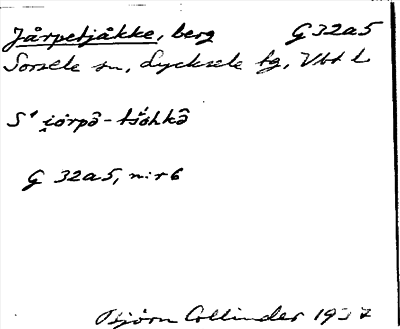 Jårpetjåkke, berg G32a5
Sorsele sn, Lycksele tg, Vbt l
S¹ i̯ȯrpə̂-tšȯ́hkə̂
G 32a5, n:r 6
Björn Collinder 1937